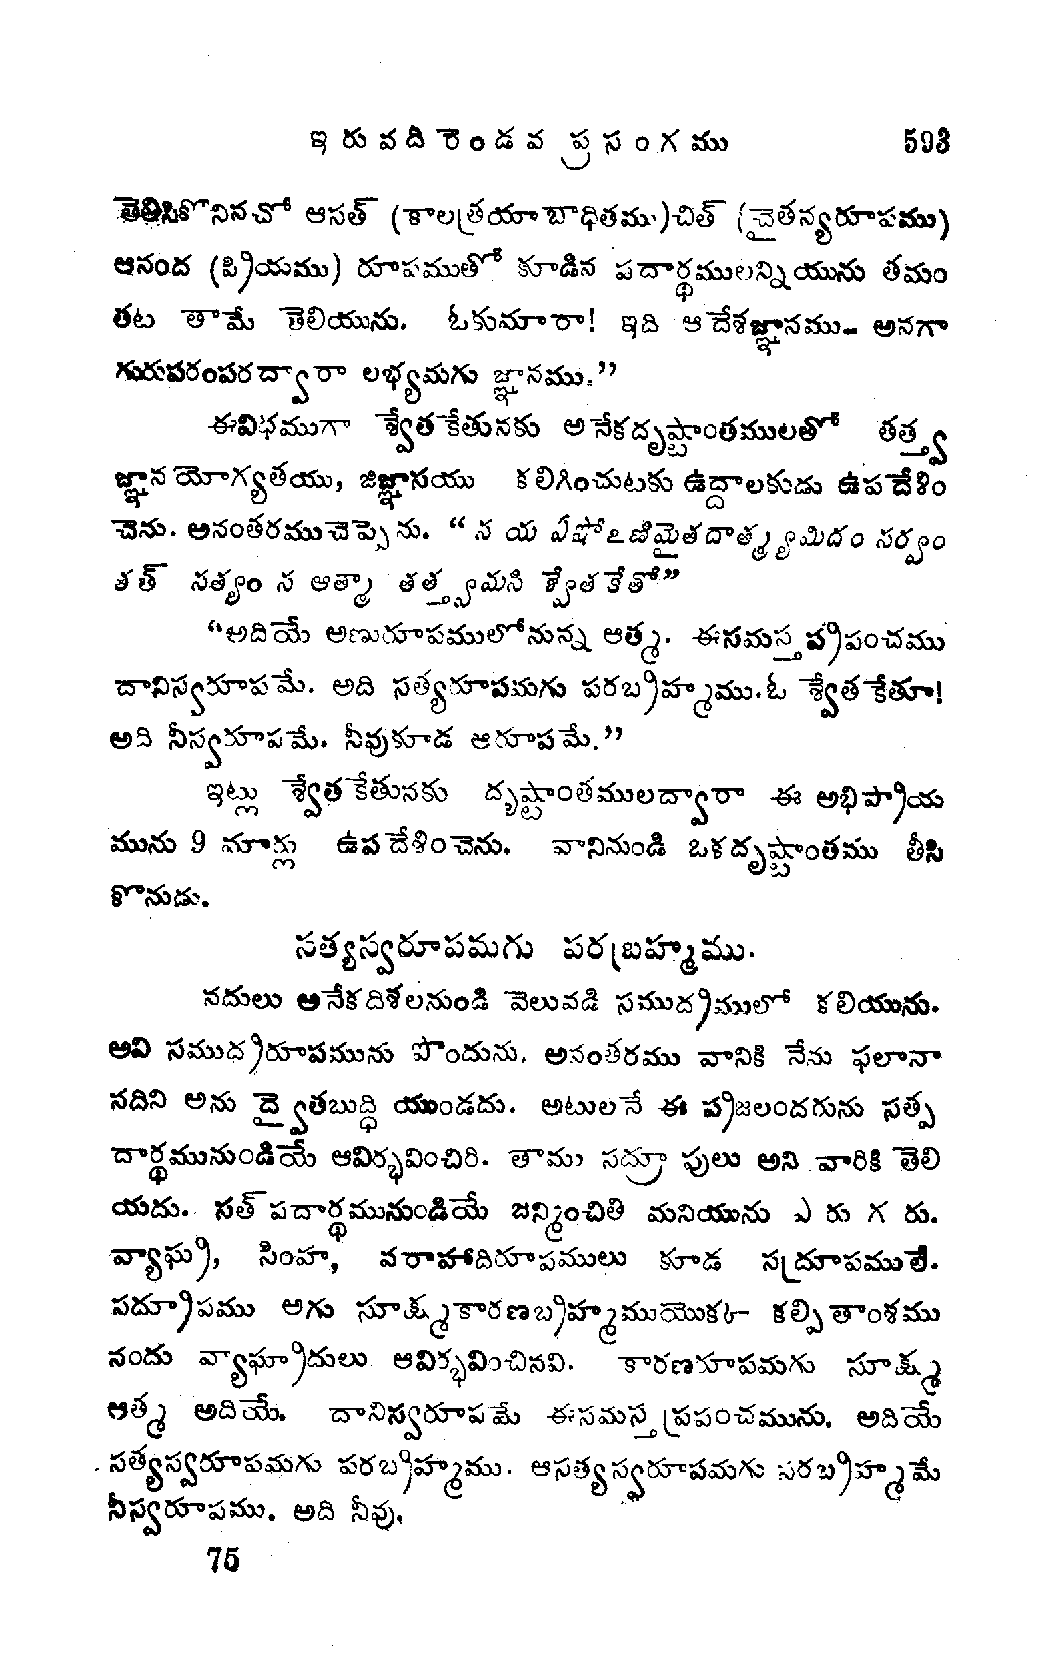 ఇరువదిరెండవ ప్రసంగము 593
తెలిసికొనినచో ఆసత్ (కాలత్రయాబాధితము)చిత్ (చైతన్యరూపము)
ఆనంద (ప్రియము) రూపముతో కూడిన పదార్థములన్నియును తమం
తట తామే తెలియును. ఓకుమారా! ఇది ఆదేశజ్ఞానము- అనగా
గురుపరంపరద్వారా లభ్యమగు జ్ఞానము."
ఈవిధముగా శ్వేతకేతునకు అనేకదృష్టాంతములతో తత్త్వ
జ్ఞానయోగ్యతయు, జిజ్ఞాసయు కలిగించుటకు ఉద్దాలకుడు ఉపదేశిం
చెను. అనంతరముచెప్పెను. "స య ఏషోఽణిమైతదాత్మ్యమిదం సర్వం
తత్ సత్యం స ఆత్మా తత్త్వమసి శ్వేతకేతో"
"అదియే అణురూపములోనున్న ఆత్మ. ఈసమస్త ప్రపంచము
దానిస్వరూపమే. అది సత్యరూపమగు పరబ్రహ్మము.ఓ శ్వేతకేతూ!
అది నీస్వరూపమే. నీవుకూడ ఆరూపమే."
ఇట్లు శ్వేతకేతునకు దృష్టాంతములద్వారా ఈ అభిప్రాయ
మును 9 మార్లు ఉపదేశించెను. వానినుండి ఒకదృష్టాంతము తీసి
కొనుడు.
సత్యస్వరూపమగు పరబ్రహ్మము.
నదులు అనేకదిశలనుండి వెలువడి సముద్రములో కలియును.
అవి సముద్రరూపమును పొందును. అనంతరము వానికి నేను ఫలానా
నదిని అను ద్వైతబుద్ధి యుండదు. అటులనే ఈ ప్రజలందరును సత్ప
దార్థమునుండియే ఆవిర్భవించిరి. తాము సద్రూపులు అని వారికి తెలి
యదు. సత్ పదార్థమునుండియే జన్మించితి మనియును ఎరుగరు.
వ్యాఘ్ర, సింహ, వరాహాదిరూపములు కూడ సద్రూపములే.
సద్రూపము అగు సూక్ష్మకారణబ్రహ్మముయొక్క కల్పితాంశము
నందు వ్యాఘ్రాదులు ఆవిర్భవించినవి. కారణరూపమగు సూక్ష్మ
ఆత్మ అదియే. దానిస్వరూపమే ఈసమస్త ప్రపంచమును. అదియే
సత్యస్వరూపమగు పరబ్రహ్మము. ఆసత్యస్వరూపమగు పరబ్రహ్మమే
నీస్వరూపము. అది నీవు.
75